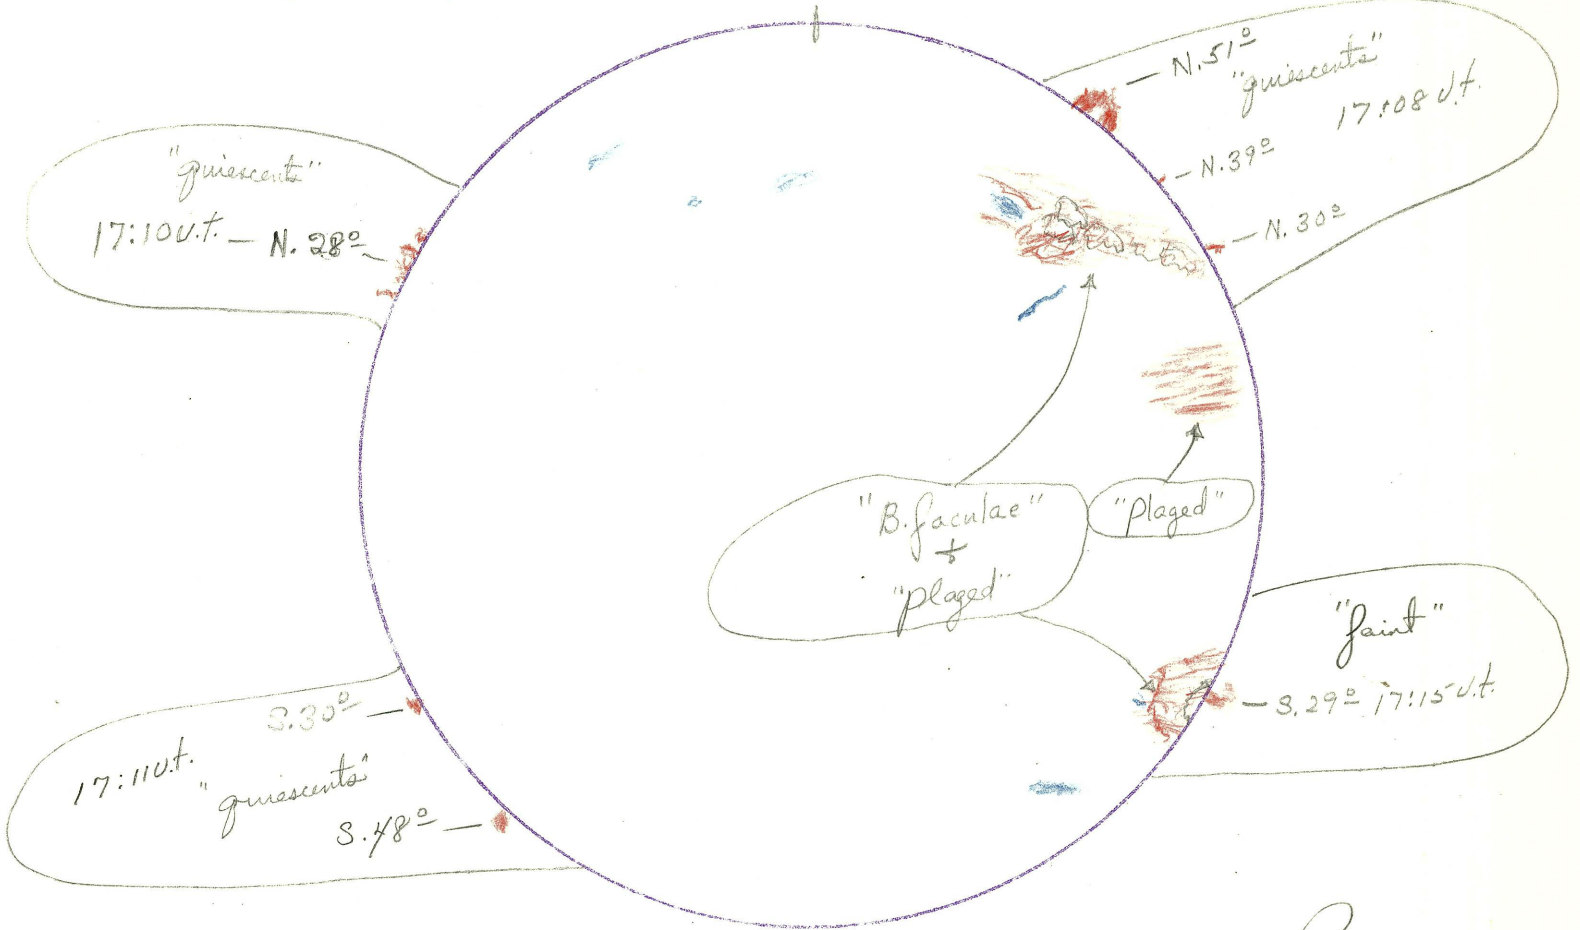 N.51º
"quiescents"
17:08 U.t.
N.39º
N.30º
"quiescents"
17:10 U.t. — N. 28º
"B.faculae"
+
"plaged"
"plaged"
"faint"
S.29º 17:15 U.t.
S.30º
17:11 U.t.
"quiescents"
S.48º